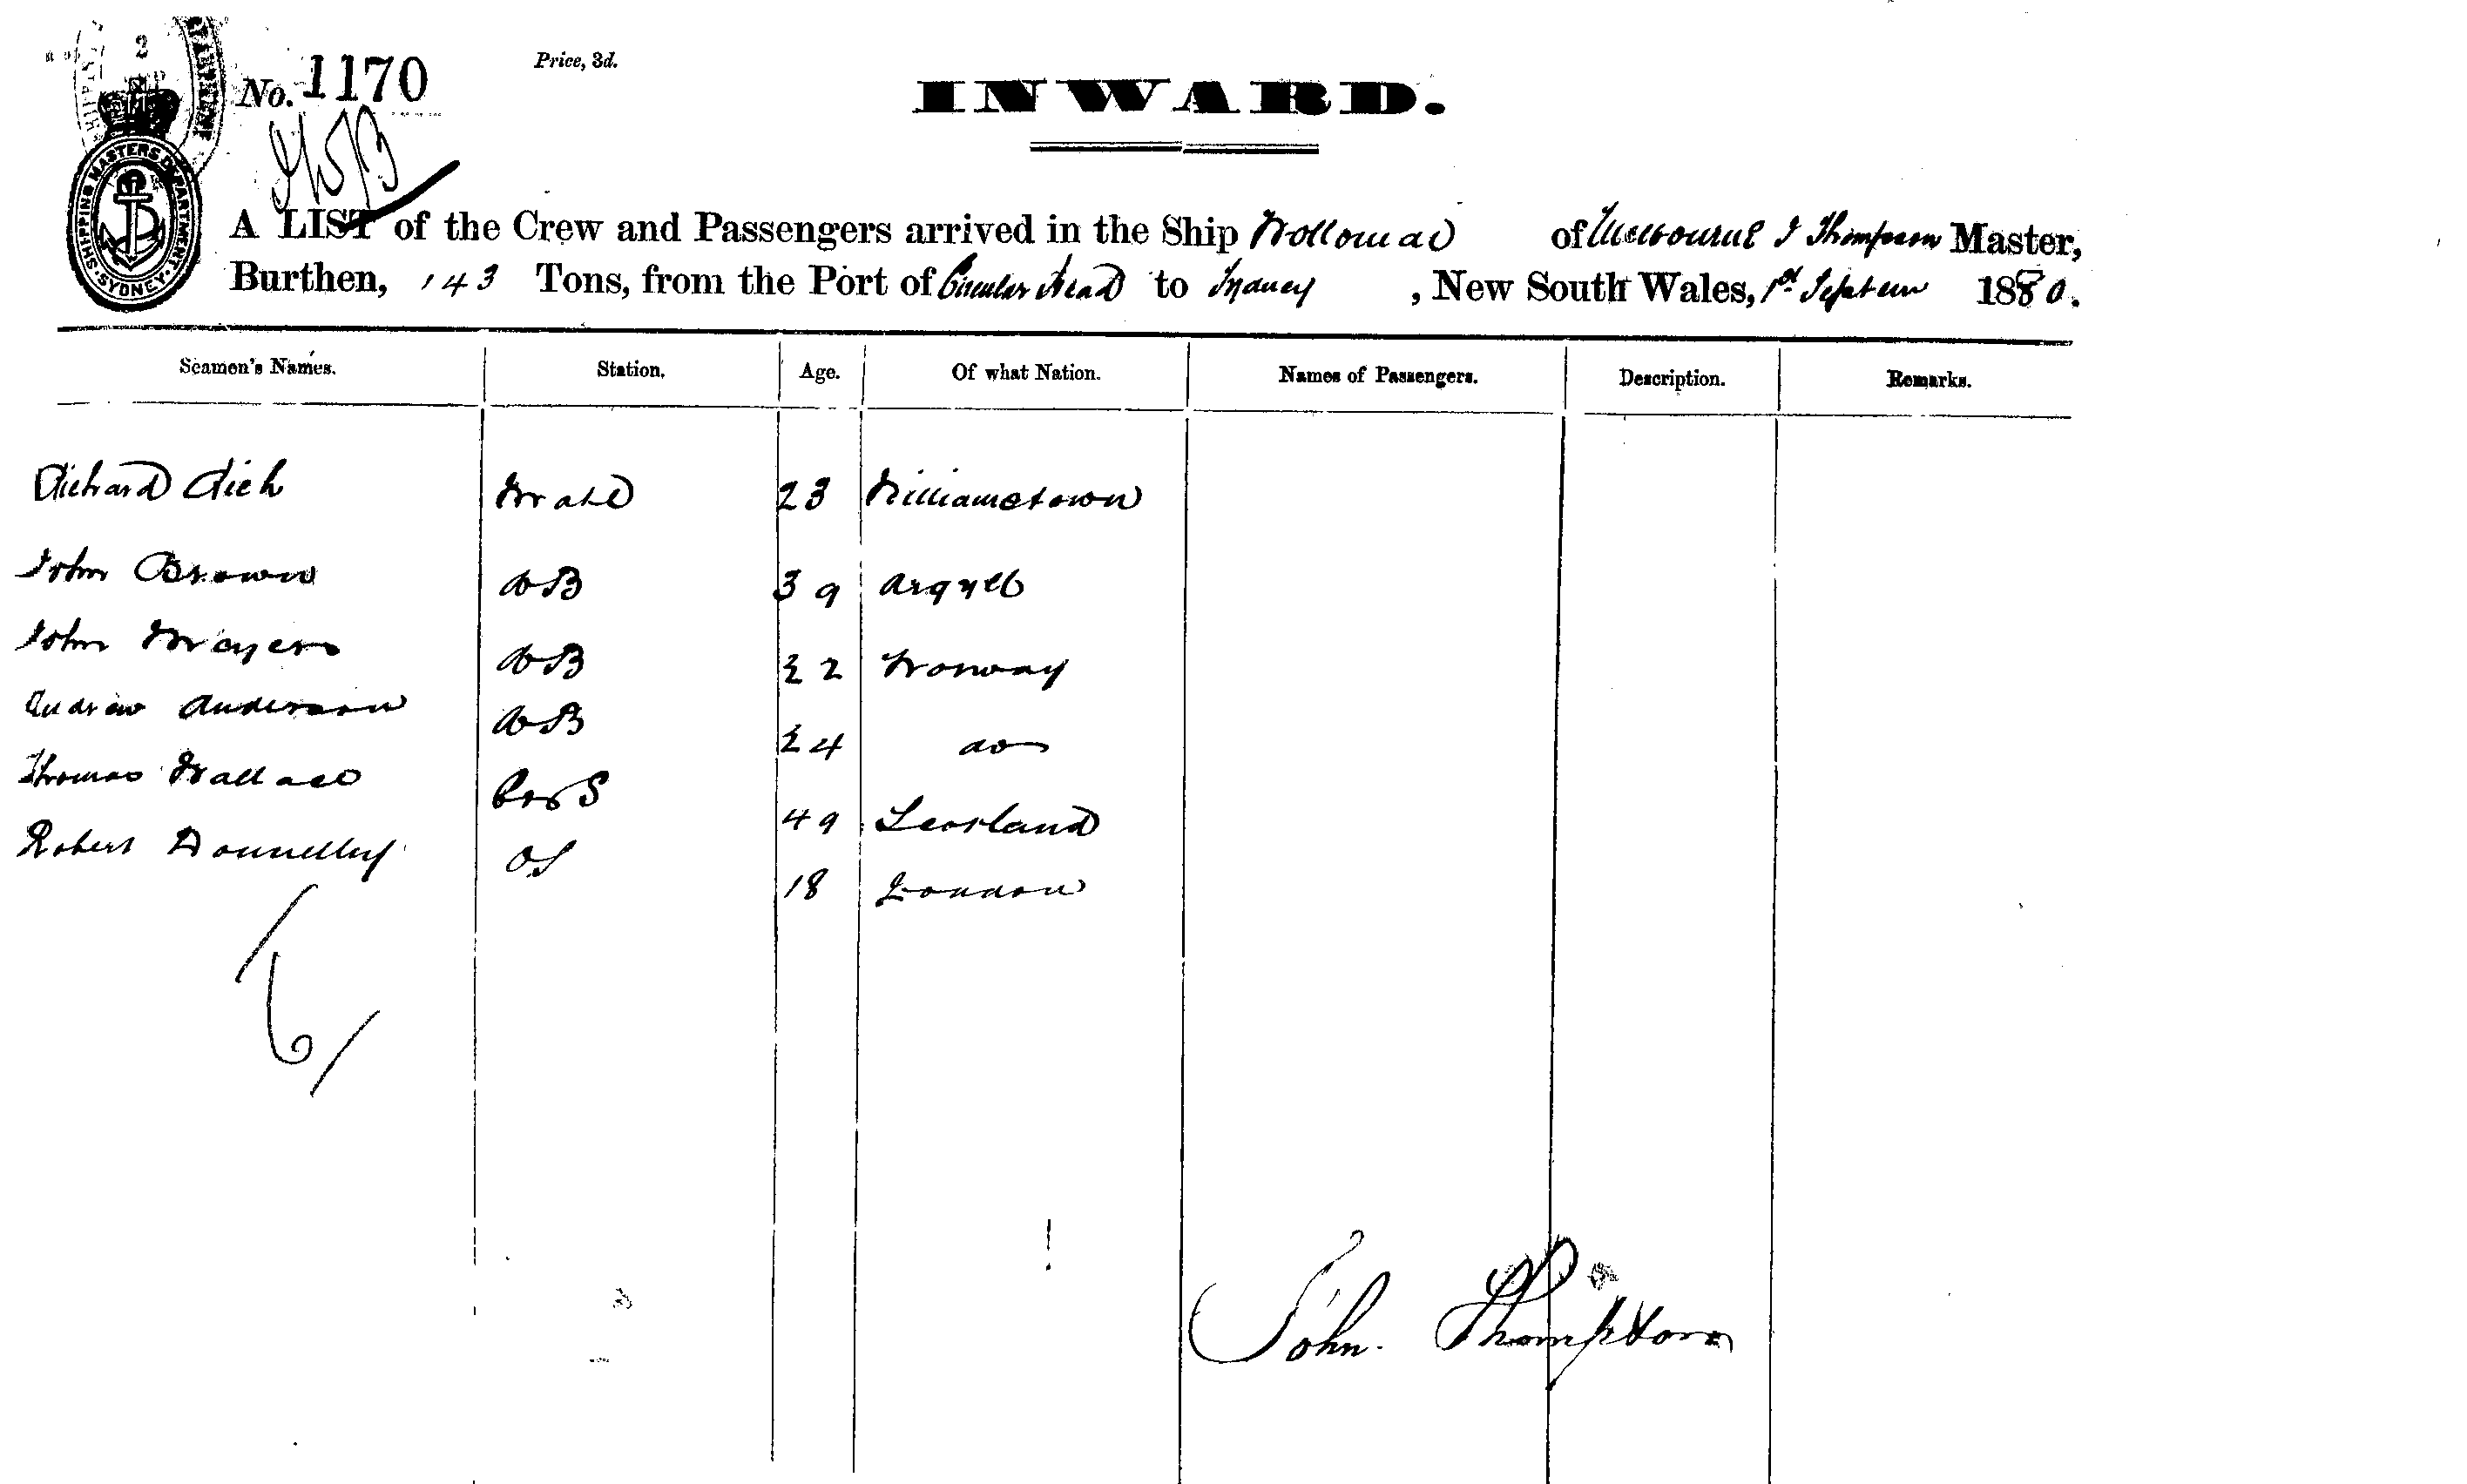 No. 1170
Price, 3d.
INWARD.
SHIPPING MASTERS DEPARTMENT. SYDNEY.
A LIST of the Crew and Passengers arrived in the Ship of Melbourne J Thompson Master,
Burthen, 143 Tons, from the Port of Circular Head to Sydney, New South Wales, 1st 1880.
Seamen's Names. Station. Age. Of what Nation. Names of Passengers. Description. Remarks.
Richard Mate 23 Williamstown
John Brown AB 39 Argyll
John Mayers AB 22 Norway
Andrew Anderson AB 24 do
Thomas Wallace 49 Scotland
Robert Donnelly OS 18 London
6
John. Thompson